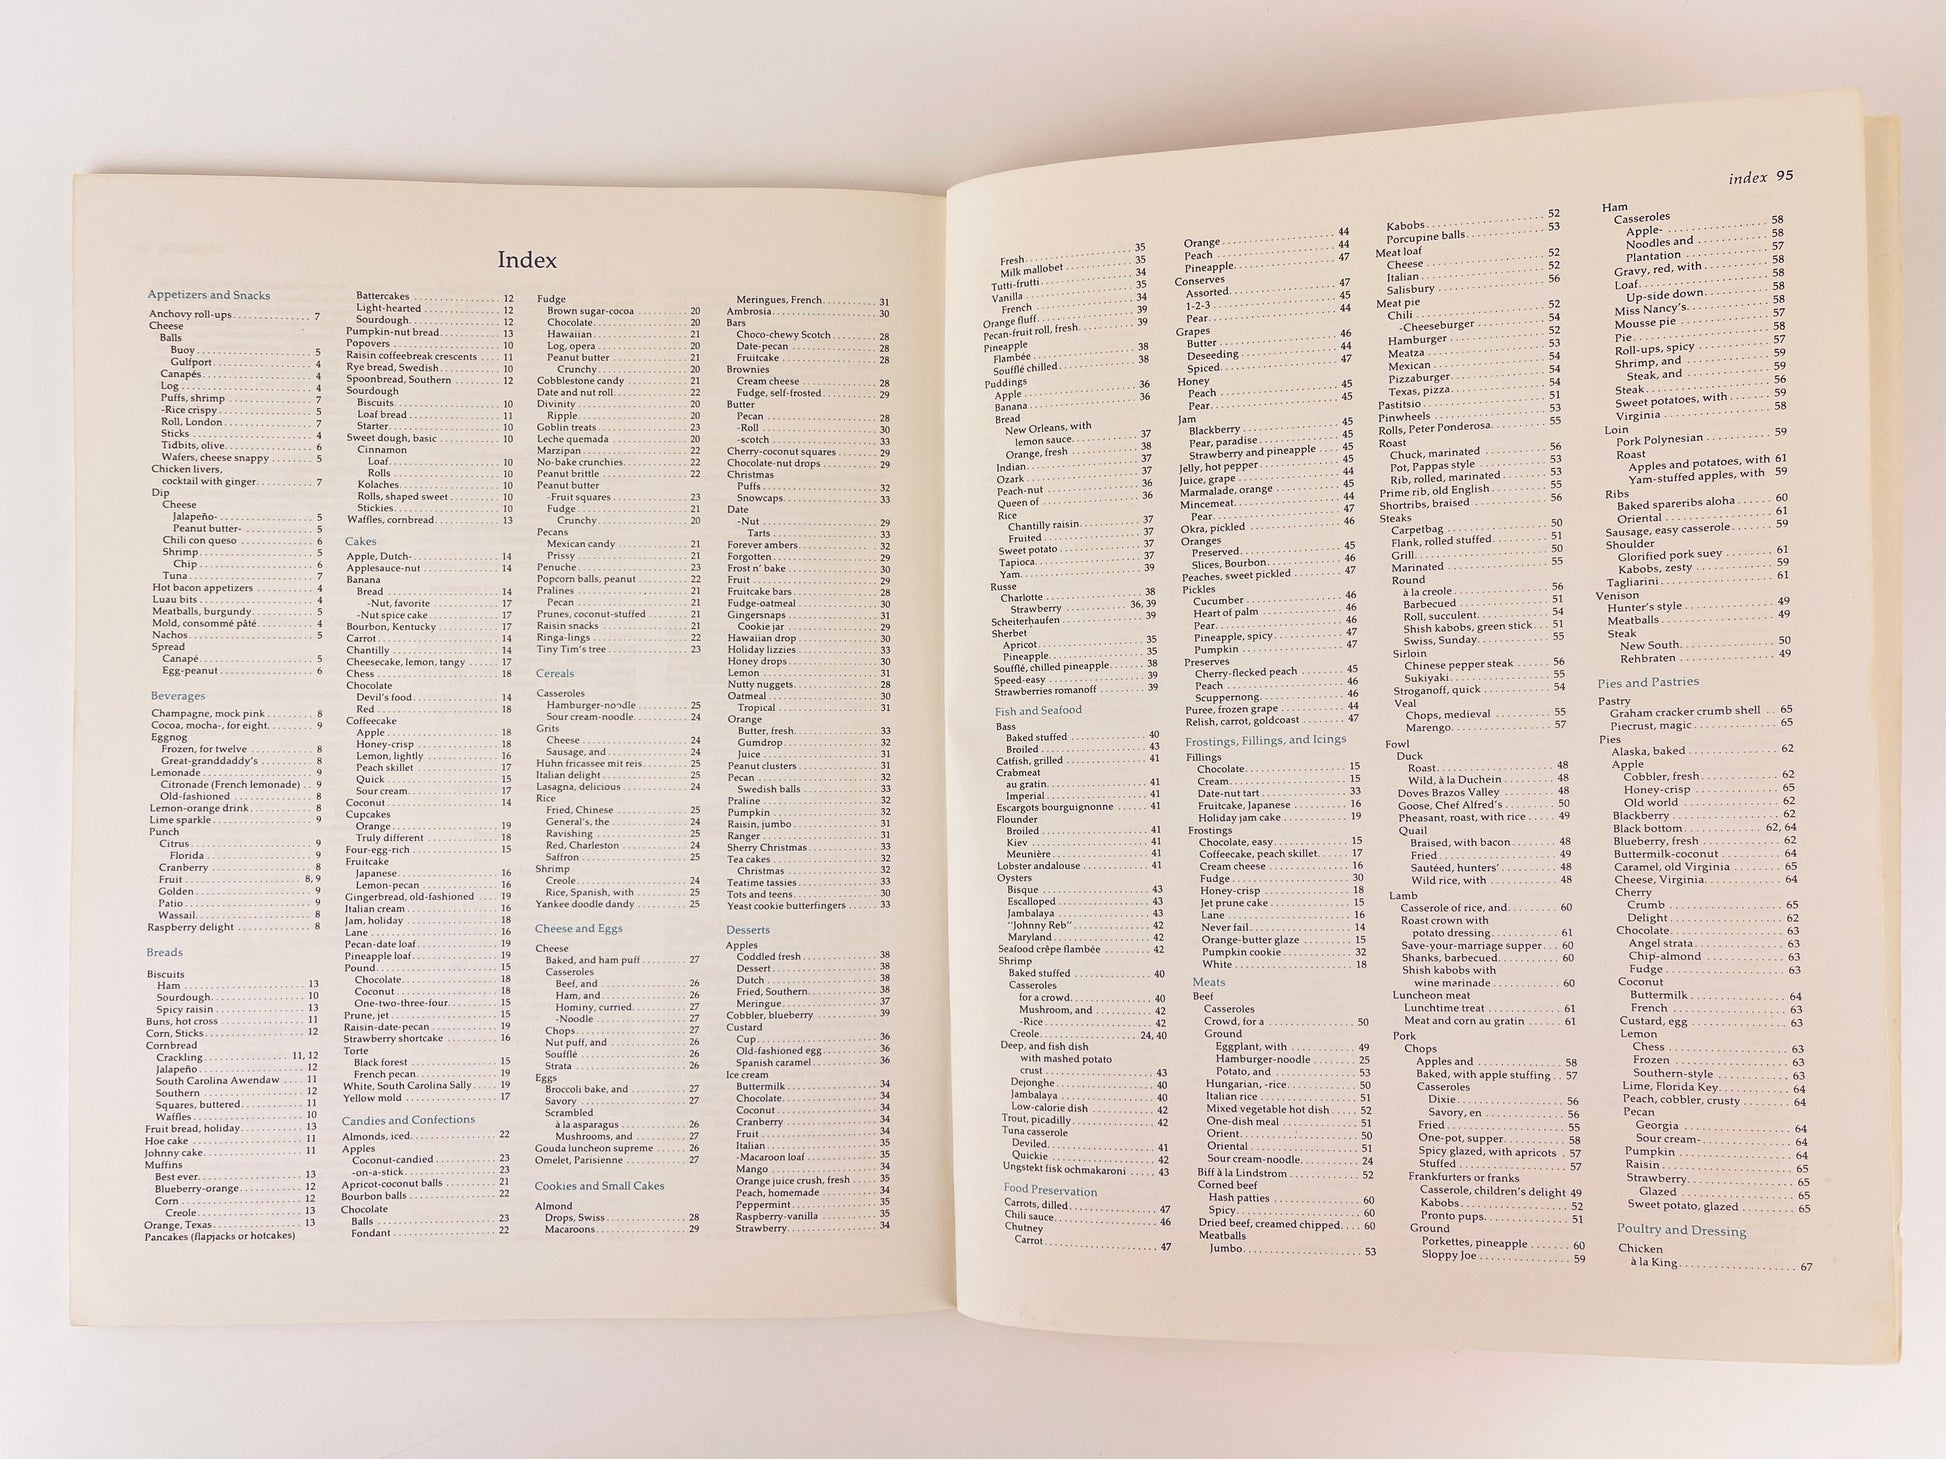 Index
Appetizers and Snacks
Anchovy roll-ups 7
Cheese
Balls
Buoy 5
Gulfport 4
Canapés 4
Log 4
Puffs, shrimp 7
-Rice crispy 5
Roll, London 7
Sticks 4
Tidbits, olive 6
Wafers, cheese snappy 5
Chicken livers,
cocktail with ginger 7
Dip
Cheese
Jalapeño- 5
Peanut butter- 5
Chili con queso 6
Shrimp 5
Chip 6
Tuna 7
Hot bacon appetizers 4
Luau bits 4
Meatballs, burgundy 5
Mold, consommé pâté 4
Nachos 5
Spread
Canapé 5
Egg-peanut 6
Beverages
Champagne, mock pink 8
Cocoa, mocha-, for eight 9
Eggnog
Frozen, for twelve 8
Great-granddaddy's 8
Lemonade 9
Citronade (French lemonade) 9
Old-fashioned 8
Lemon-orange drink 8
Lime sparkle 9
Punch
Citrus 9
Florida 9
Cranberry 8
Fruit 8, 9
Golden 9
Patio 9
Wassail 8
Raspberry delight 8
Breads
Biscuits
Ham 13
Sourdough 10
Spicy raisin 13
Buns, hot cross 11
Corn, Sticks 12
Cornbread
Crackling 11, 12
Jalapeño 12
South Carolina Awendaw 11
Southern 12
Squares, buttered 11
Waffles 10
Fruit bread, holiday 13
Hoe cake 11
Johnny cake 11
Muffins
Best ever 13
Blueberry-orange 12
Corn 12
Creole 13
Orange, Texas 13
Pancakes (flapjacks or hotcakes)
Battercakes 12
Light-hearted 12
Sourdough 12
Pumpkin-nut bread 13
Popovers 10
Raisin coffeebreak crescents 11
Rye bread, Swedish 10
Spoonbread, Southern 12
Sourdough
Biscuits 10
Loaf bread 11
Starter 10
Sweet dough, basic 10
Cinnamon
Loaf 10
Rolls 10
Kolaches 10
Rolls, shaped sweet 10
Stickies 10
Waffles, cornbread 13
Cakes
Apple, Dutch- 14
Applesauce-nut 14
Banana
Bread 14
-Nut, favorite 17
-Nut spice cake 17
Bourbon, Kentucky 17
Carrot 14
Chantilly 14
Cheesecake, lemon, tangy 17
Chess 18
Chocolate
Devil's food 14
Red 18
Coffeecake
Apple 18
Honey-crisp 18
Lemon, lightly 16
Peach skillet 17
Quick 15
Sour cream 17
Coconut 14
Cupcakes
Orange 19
Truly different 18
Four-egg-rich 15
Fruitcake
Japanese 16
Lemon-pecan 16
Gingerbread, old-fashioned 19
Italian cream 16
Jam, holiday 18
Lane 16
Pecan-date loaf 19
Pineapple loaf 19
Pound 15
Chocolate 18
Coconut 18
One-two-three-four 15
Prune, jet 15
Raisin-date-pecan 19
Strawberry shortcake 16
Torte
Black forest 15
French pecan 19
White, South Carolina Sally 19
Yellow mold 17
Candies and Confections
Almonds, iced 22
Apples
Coconut-candied 23
-on-a-stick 23
Apricot-coconut balls 21
Bourbon balls 22
Chocolate
Balls 23
Fondant 22
Fudge
Brown sugar-cocoa 20
Chocolate 20
Hawaiian 21
Log, opera 20
Peanut butter 21
Crunchy 20
Cobblestone candy 21
Date and nut roll 22
Divinity 20
Ripple 20
Goblin treats 23
Leche quemada 20
Marzipan 22
No-bake crunchies 22
Peanut brittle 22
Peanut butter
-Fruit squares 23
Fudge 21
Crunchy 20
Pecans
Mexican candy 21
Prissy 21
Penuche 23
Popcorn balls, peanut 22
Pralines 21
Pecan 21
Prunes, coconut-stuffed 21
Raisin snacks 21
Ringa-lings 22
Tiny Tim's tree 23
Cereals
Casseroles
Hamburger-noodle 25
Sour cream-noodle 24
Grits
Cheese 24
Sausage, and 24
Huhn fricassee mit reis 25
Italian delight 25
Lasagna, delicious 24
Rice
Fried, Chinese 25
General's, the 24
Ravishing 25
Red, Charleston 24
Saffron 25
Shrimp
Creole 24
Rice, Spanish, with 25
Yankee doodle dandy 25
Cheese and Eggs
Cheese
Baked, and ham puff 27
Casseroles
Beef, and 26
Ham, and 26
Hominy, curried 27
-Noodle 27
Chops 27
Nut puff, and 26
Soufflé 26
Strata 26
Eggs
Broccoli bake, and 27
Savory 27
Scrambled
à la asparagus 26
Mushrooms, and 27
Gouda luncheon supreme 26
Omelet, Parisienne 27
Cookies and Small Cakes
Almond
Drops, Swiss 28
Macaroons 29
Meringues, French 31
Ambrosia 30
Bars
Choco-chewy Scotch 28
Date-pecan 28
Fruitcake 28
Brownies
Cream cheese 28
Fudge, self-frosted 29
Butter
Pecan 28
-Roll 30
-scotch 33
Cherry-coconut squares 29
Chocolate-nut drops 29
Christmas
Puffs 32
Snowcaps 33
Date
-Nut 29
Tarts 33
Forever ambers 32
Forgotten 29
Frost n' bake 30
Fruit 29
Fruitcake bars 28
Fudge-oatmeal 30
Gingersnaps 31
Cookie jar 29
Hawaiian drop 30
Holiday lizzies 33
Honey drops 30
Lemon 31
Nutty nuggets 28
Oatmeal 30
Tropical 31
Orange
Butter, fresh 33
Gumdrop 32
Juice 31
Peanut clusters 31
Pecan 32
Swedish balls 33
Praline 32
Pumpkin 32
Raisin, jumbo 31
Ranger 31
Sherry Christmas 33
Tea cakes 32
Christmas 32
Teatime tassies 33
Tots and teens 30
Yeast cookie butterfingers 33
Desserts
Apples
Coddled fresh 38
Dessert 38
Dutch 38
Fried, Southern 38
Meringue 37
Cobbler, blueberry 39
Custard
Cup 36
Old-fashioned egg 36
Spanish caramel 36
Ice cream
Buttermilk 34
Chocolate 34
Coconut 34
Cranberry 34
Fruit 34
Italian 35
-Macaroon loaf 35
Mango 34
Orange juice crush, fresh 35
Peach, homemade 34
Peppermint 35
Raspberry-vanilla 35
Strawberry 34
index 95
Fresh 35
Milk mallobet 35
Tutti-frutti 34
Vanilla 35
French 34
Orange fluff 39
Pecan-fruit roll, fresh 39
Pineapple
Flambée 38
Soufflé chilled 38
Puddings
Apple 36
Banana 36
Bread
New Orleans, with
lemon sauce 37
Orange, fresh 38
Indian 37
Ozark 37
Peach-nut 36
Queen of 36
Rice
Chantilly raisin 37
Fruited 37
Sweet potato 37
Tapioca 37
Yam 39
Russe
Charlotte 38
Strawberry 36, 39
Scheiterhaufen 39
Sherbet
Apricot 35
Pineapple 35
Soufflé, chilled pineapple 38
Speed-easy 39
Strawberries romanoff 39
Fish and Seafood
Bass
Baked stuffed 40
Broiled 43
Catfish, grilled 41
Crabmeat
au gratin 41
Imperial 41
Escargots bourguignonne 41
Flounder
Broiled 41
Kiev 41
Meunière 41
Lobster andalouse 41
Oysters
Bisque 43
Escalloped 43
Jambalaya 43
"Johnny Reb" 42
Maryland 42
Seafood crêpe flambée 42
Shrimp
Baked stuffed 40
Casseroles
for a crowd 40
Mushroom, and 42
-Rice 42
Creole 24, 40
Deep, and fish dish
with mashed potato
crust 43
Dejonghe 40
Jambalaya 40
Low-calorie dish 42
Trout, picadilly 42
Tuna casserole
Deviled 41
Quickie 42
Ungstekt fisk ochmakaroni 43
Food Preservation
Carrots, dilled 47
Chili sauce 46
Chutney
Carrot 47
Orange 44
Peach 44
Pineapple 47
Conserves
Assorted 47
1-2-3 45
Pear 44
Grapes
Butter 46
Deseeding 44
Spiced 47
Honey
Peach 45
Pear 45
Jam
Blackberry 45
Pear, paradise 45
Strawberry and pineapple 45
Jelly, hot pepper 45
Juice, grape 44
Marmalade, orange 45
Mincemeat 44
Pear 47
Okra, pickled 46
Oranges
Preserved 45
Slices, Bourbon 46
Peaches, sweet pickled 47
Pickles
Cucumber 46
Heart of palm 46
Pear 46
Pineapple, spicy 47
Pumpkin 47
Preserves
Cherry-flecked peach 45
Peach 46
Scuppernong 46
Puree, frozen grape 44
Relish, carrot, goldcoast 47
Frostings, Fillings, and Icings
Fillings
Chocolate 15
Cream 15
Date-nut tart 33
Fruitcake, Japanese 16
Holiday jam cake 19
Frostings
Chocolate, easy 15
Coffeecake, peach skillet 17
Cream cheese 16
Fudge 30
Honey-crisp 18
Jet prune cake 15
Lane 16
Never fail 14
Orange-butter glaze 15
Pumpkin cookie 32
White 18
Meats
Beef
Casseroles
Crowd, for a 50
Ground
Eggplant, with 49
Hamburger-noodle 25
Potato, and 53
Hungarian, -rice 50
Italian rice 51
Mixed vegetable hot dish 52
One-dish meal 51
Orient 50
Oriental 51
Sour cream-noodle 24
Biff à la Lindstrom 52
Corned beef
Hash patties 60
Spicy 60
Dried beef, creamed chipped 60
Meatballs
Jumbo 53
Kabobs 52
Porcupine balls 53
Meat loaf
Cheese 52
Italian 52
Salisbury 56
Meat pie
Chili 52
-Cheeseburger 54
Hamburger 52
Meatza 53
Mexican 54
Pizzaburger 54
Texas, pizza 54
Pastitsio 51
Pinwheels 53
Rolls, Peter Ponderosa 55
Roast
Chuck, marinated 56
Pot, Pappas style 53
Rib, rolled, marinated 53
Prime rib, old English 55
Shortribs, braised 56
Steaks
Carpetbag 50
Flank, rolled stuffed 51
Grill 50
Marinated 55
Round
à la creole 56
Barbecued 51
Roll, succulent 54
Shish kabobs, green stick 51
Swiss, Sunday 55
Sirloin
Chinese pepper steak 56
Sukiyaki 55
Stroganoff, quick 54
Veal
Chops, medieval 55
Marengo 57
Fowl
Duck
Roast 48
Wild, à la Duchein 48
Doves Brazos Valley 48
Goose, Chef Alfred's 50
Pheasant, roast, with rice 49
Quail
Braised, with bacon 48
Fried 49
Sautéed, hunters' 48
Wild rice, with 48
Lamb
Casserole of rice, and 60
Roast crown with
potato dressing 61
Save-your-marriage supper 60
Shanks, barbecued 60
Shish kabobs with
wine marinade 60
Luncheon meat
Lunchtime treat 61
Meat and corn au gratin 61
Pork
Chops
Apples and 58
Baked, with apple stuffing 57
Casseroles
Dixie 56
Savory, en 56
Fried 55
One-pot, supper 58
Spicy glazed, with apricots 57
Stuffed 57
Frankfurters or franks
Casserole, children's delight 49
Kabobs 52
Pronto pups 51
Ground
Porkettes, pineapple 60
Sloppy Joe 59
Ham
Casseroles
Apple- 58
Noodles and 58
Plantation 57
Gravy, red, with 58
Loaf 58
Up-side down 58
Miss Nancy's 58
Mousse pie 57
Pie 58
Roll-ups, spicy 57
Shrimp, and 59
Steak, and 59
Steak 56
Sweet potatoes, with 59
Virginia 58
Loin
Pork Polynesian 59
Roast
Apples and potatoes, with 61
Yam-stuffed apples, with 59
Ribs
Baked spareribs aloha 60
Oriental 61
Sausage, easy casserole 59
Shoulder
Glorified pork suey 61
Kabobs, zesty 59
Tagliarini 61
Venison
Hunter's style 49
Meatballs 49
Steak
New South 50
Rehbraten 49
Pies and Pastries
Pastry
Graham cracker crumb shell 65
Piecrust, magic 65
Pies
Alaska, baked 62
Apple
Cobbler, fresh 62
Honey-crisp 65
Old world 62
Blackberry 62
Black bottom 62, 64
Blueberry, fresh 62
Buttermilk-coconut 64
Caramel, old Virginia 65
Cheese, Virginia 64
Cherry
Crumb 65
Delight 62
Chocolate 63
Angel strata 63
Chip-almond 63
Fudge 63
Coconut
Buttermilk 64
French 63
Custard, egg 63
Lemon
Chess 63
Frozen 63
Southern-style 63
Lime, Florida Key 64
Peach, cobbler, crusty 64
Pecan
Georgia 64
Sour cream- 64
Pumpkin 64
Raisin 65
Strawberry 65
Glazed 65
Sweet potato, glazed 65
Poultry and Dressing
Chicken
à la King 67